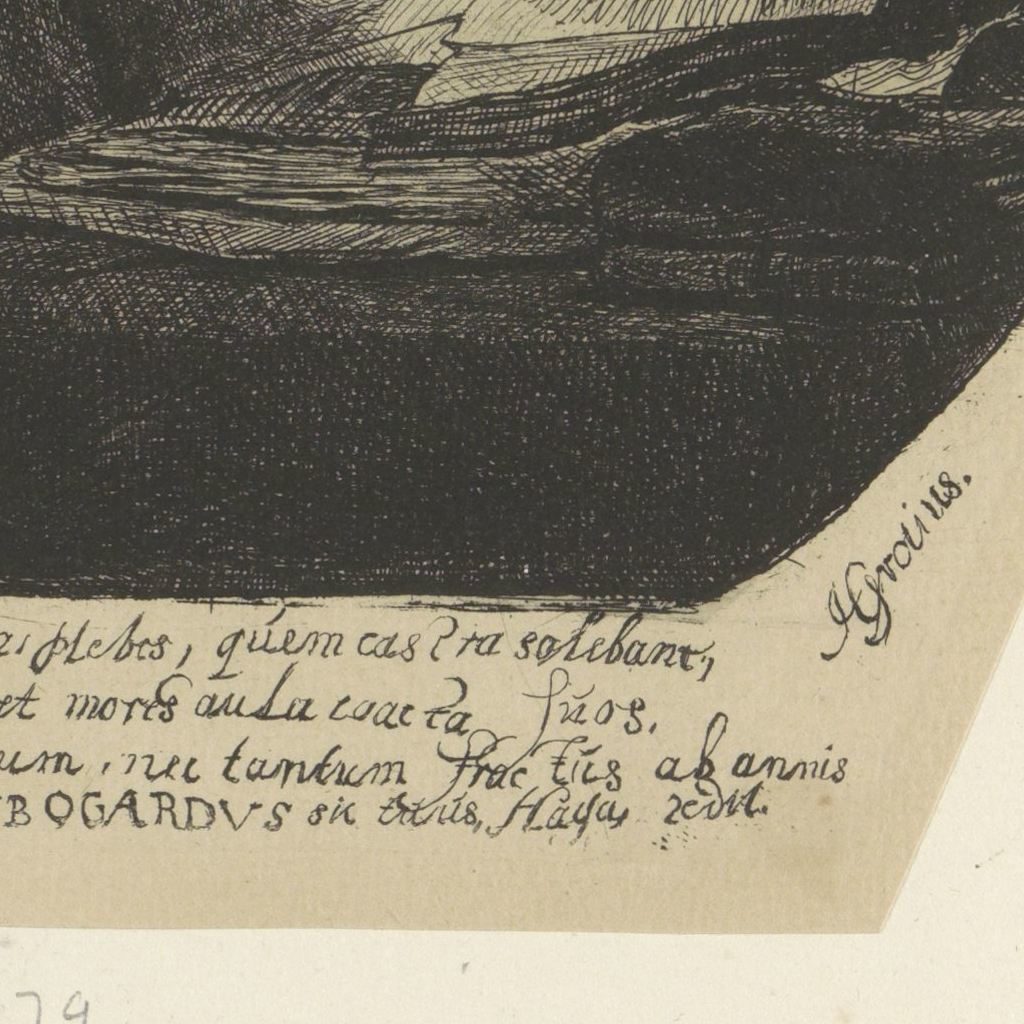 plebes, quem castra solebant,
et mores aula coacta suos.
um, nec tantum fractus ab annis
BOGARDVS sic tuus, Haga, redit.
HGrotius.
79